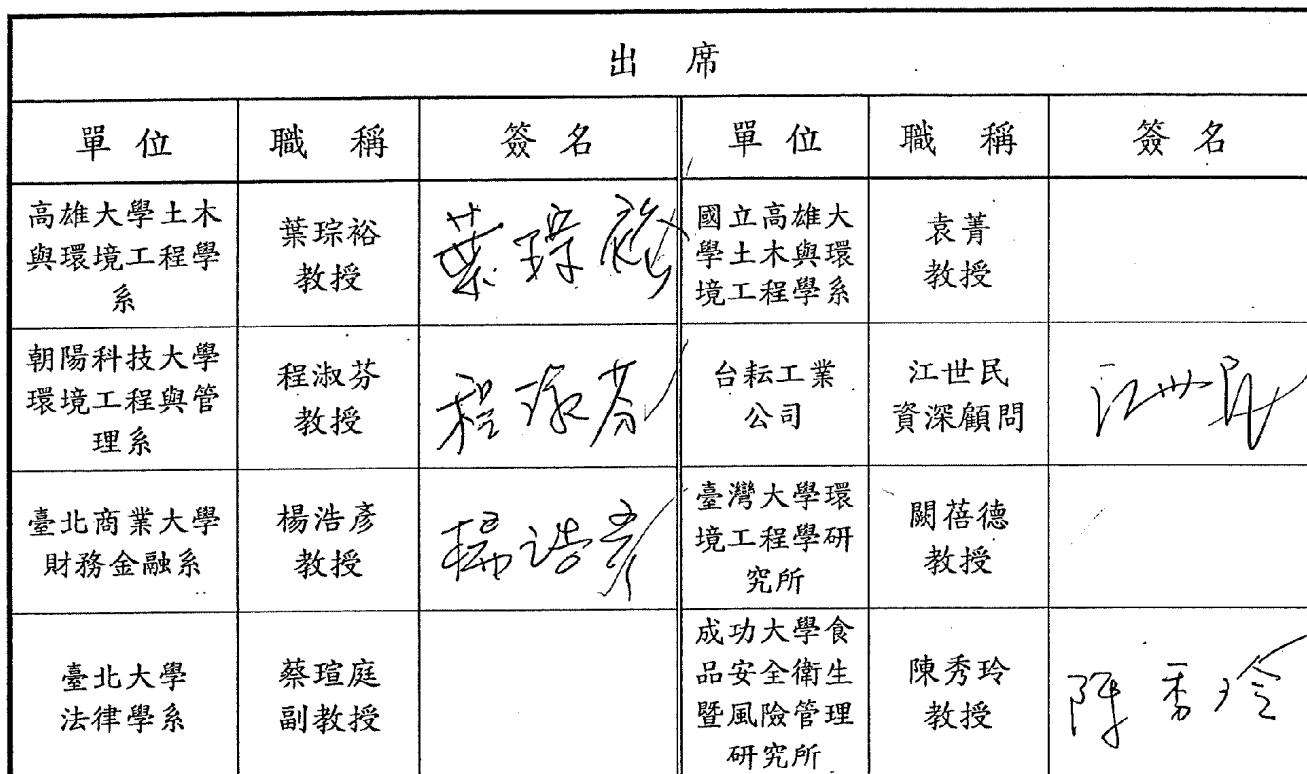 出 席
單位 職稱 簽名 單位 職稱 簽名
高雄大學土木
與環境工程學
系
葉琮裕
教授
葉琮裕
國立高雄大
學土木與環
境工程學系
袁菁
教授
朝陽科技大學
環境工程與管
理系
程淑芬
教授
程淑芬
台耘工業
公司
江世民
資深顧問
江世民
臺北商業大學
財務金融系
楊浩彥
教授
楊浩彥
臺灣大學環
境工程學研
究所
闕蓓德
教授
臺北大學
法律學系
蔡瑄庭
副教授
成功大學食
品安全衛生
暨風險管理
研究所
陳秀玲
教授
陳秀玲